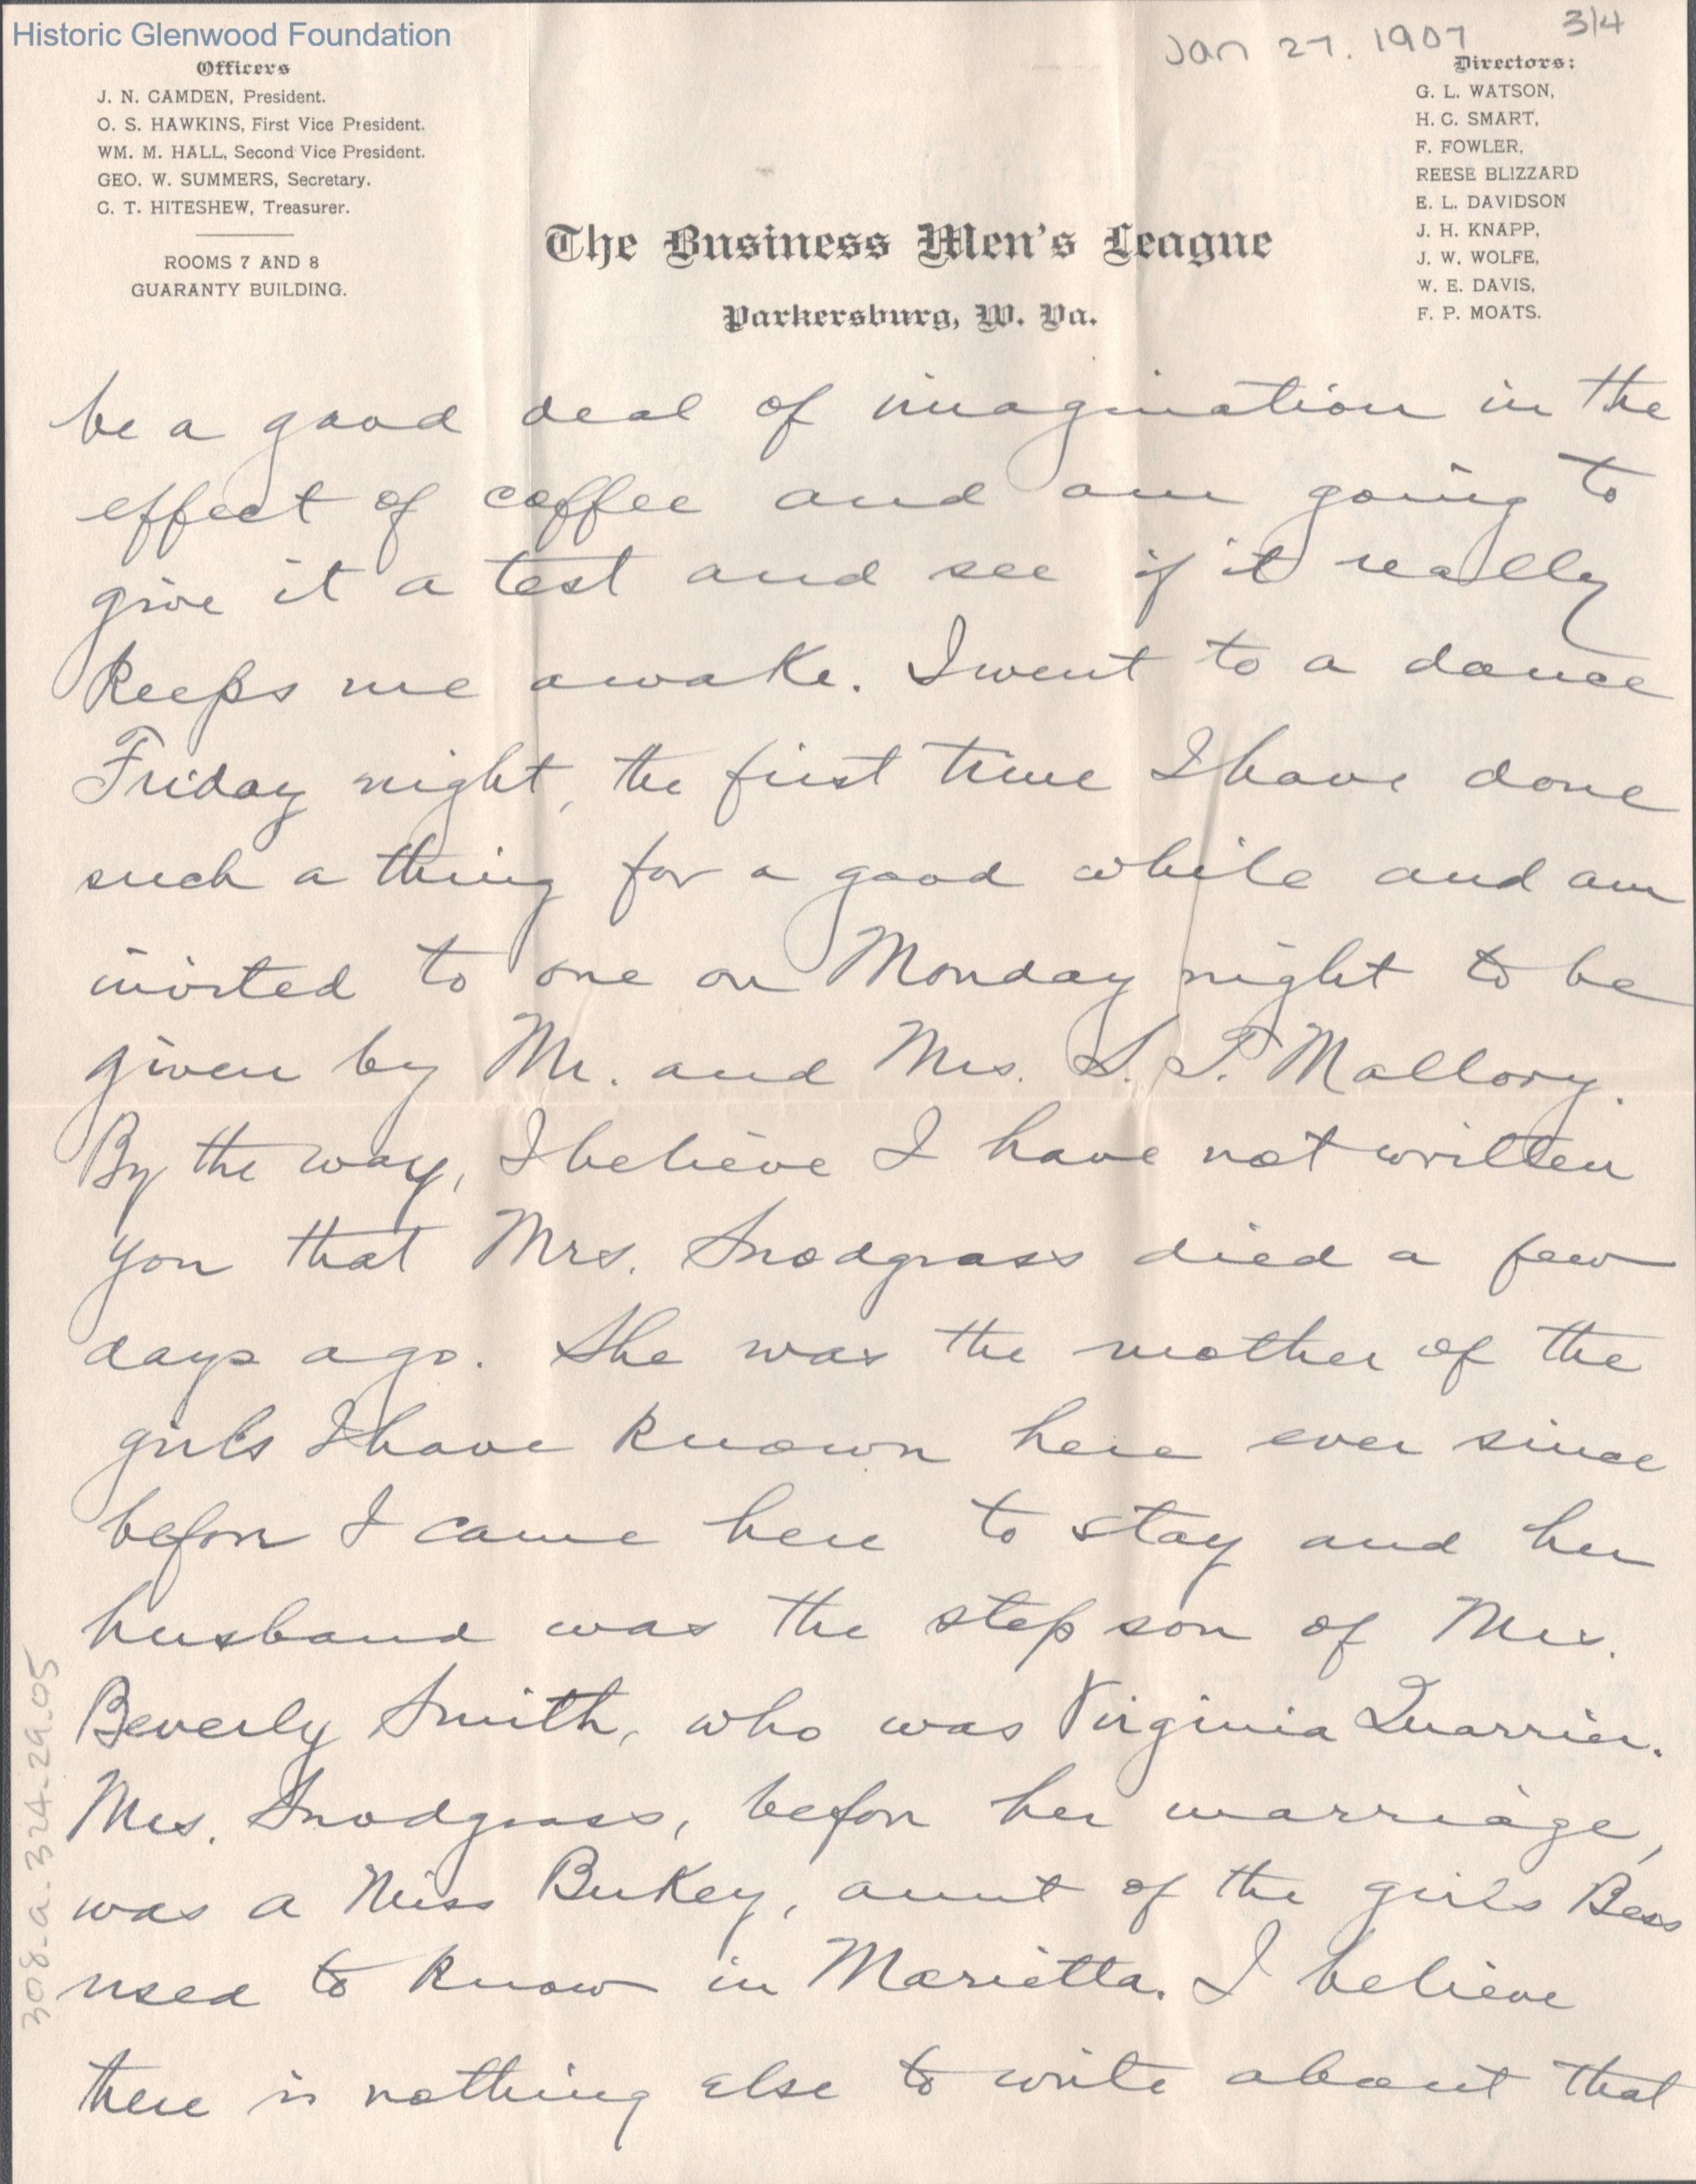 Historic Glenwood Foundation
Jan 27. 1907
3/4
Officers
J. N. CAMDEN, President.
O. S. HAWKINS, First Vice President.
WM. M. HALL, Second Vice President.
GEO. W. SUMMERS, Secretary.
C. T. HITESHEW, Treasurer.
ROOMS 7 AND 8
GUARANTY BUILDING.
The Business Men's League
Parkersburg, W. Va.
Directors:
G. L. WATSON,
H. C. SMART,
F. FOWLER,
REESE BLIZZARD
E. L. DAVIDSON
J. H. KNAPP,
J. W. WOLFE,
W. E. DAVIS,
F. P. MOATS.
be a good deal of imagination in the
effect of coffee and am going to
give it a test and see if it really
keeps me awake. I went to a dance
Friday night, the first time I have done
such a thing for a good while and am
invited to one on Monday night to be
given by Mr. and Mrs. S. T. Mallory.
By the way, I believe I have not written
you that Mrs. Snodgrass died a few
days ago. She was the mother of the
girls I have known here ever since
before I came here to stay and her
husband was the step son of Mrs.
Beverly Smith, who was Virginia Quarrier.
Mrs. Snodgrass, before her marriage,
was a Miss Bukey, aunt of the girls Bess
used to know in Marietta. I believe
there is nothing else to write about that
308-a.324-29.05